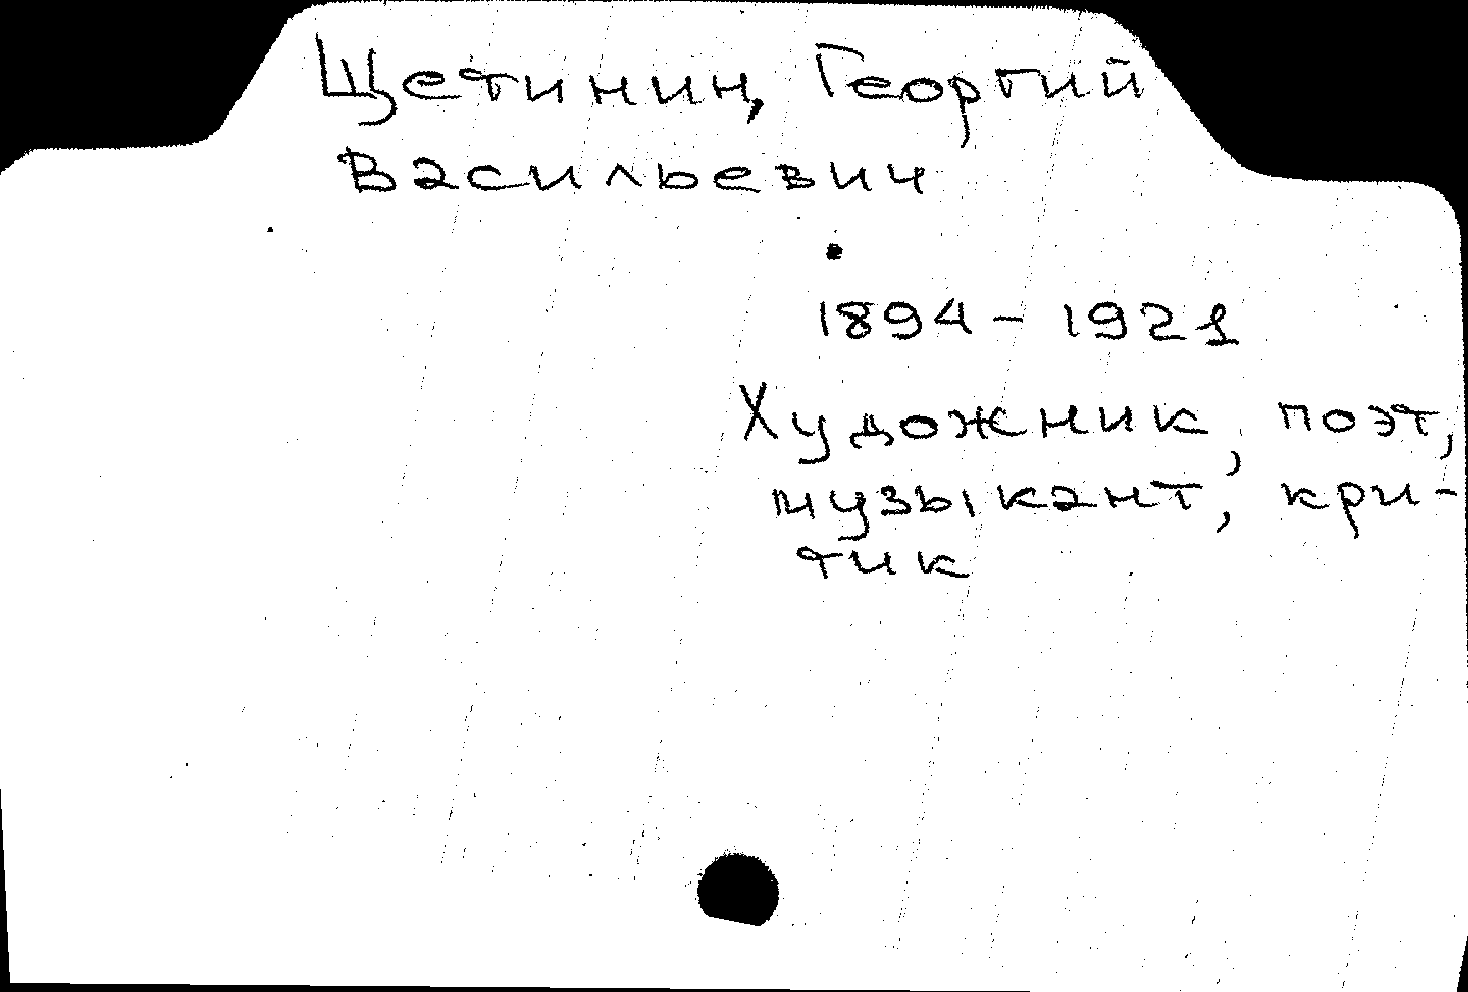 Щетинин, Георгий
Васильевич
1894 - 1921
Художник, поэт,
музыкант, кри-
тик